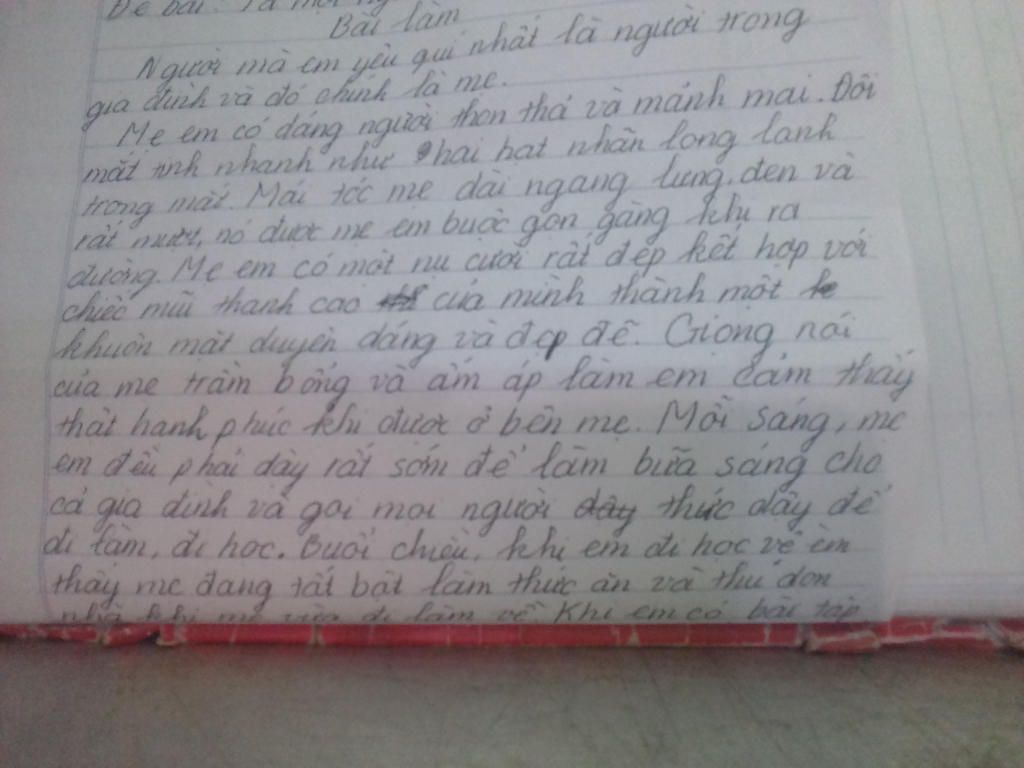 Đề bài: Tả một
Bài làm
Người mà em yêu quí nhất là người trong
gia đình và đó chính là mẹ.
Mẹ em có dáng người thon thả và mảnh mai. Đôi
mắt tinh nhanh như hai hạt nhãn long lanh
trong mắt. Mái tóc mẹ dài ngang lưng, đen và
rất mượt, nó được mẹ em buộc gọn gàng khi ra
đường. Mẹ em có một nụ cười rất đẹp kết hợp với
chiếc mũi thanh cao của mình thành một
khuôn mặt duyên dáng và đẹp đẽ. Giọng nói
của mẹ trầm bổng và ấm áp làm em cảm thấy
thật hạnh phúc khi được ở bên mẹ. Mỗi sáng, mẹ
em đều phải dậy rất sớm để làm bữa sáng cho
cả gia đình và gọi mọi người thức dậy để
đi làm, đi học. Buổi chiều, khi em đi học về em
thấy mẹ đang tất bật làm thức ăn và thu dọn
nhà khi mẹ vừa đi làm về. Khi em có bài tập